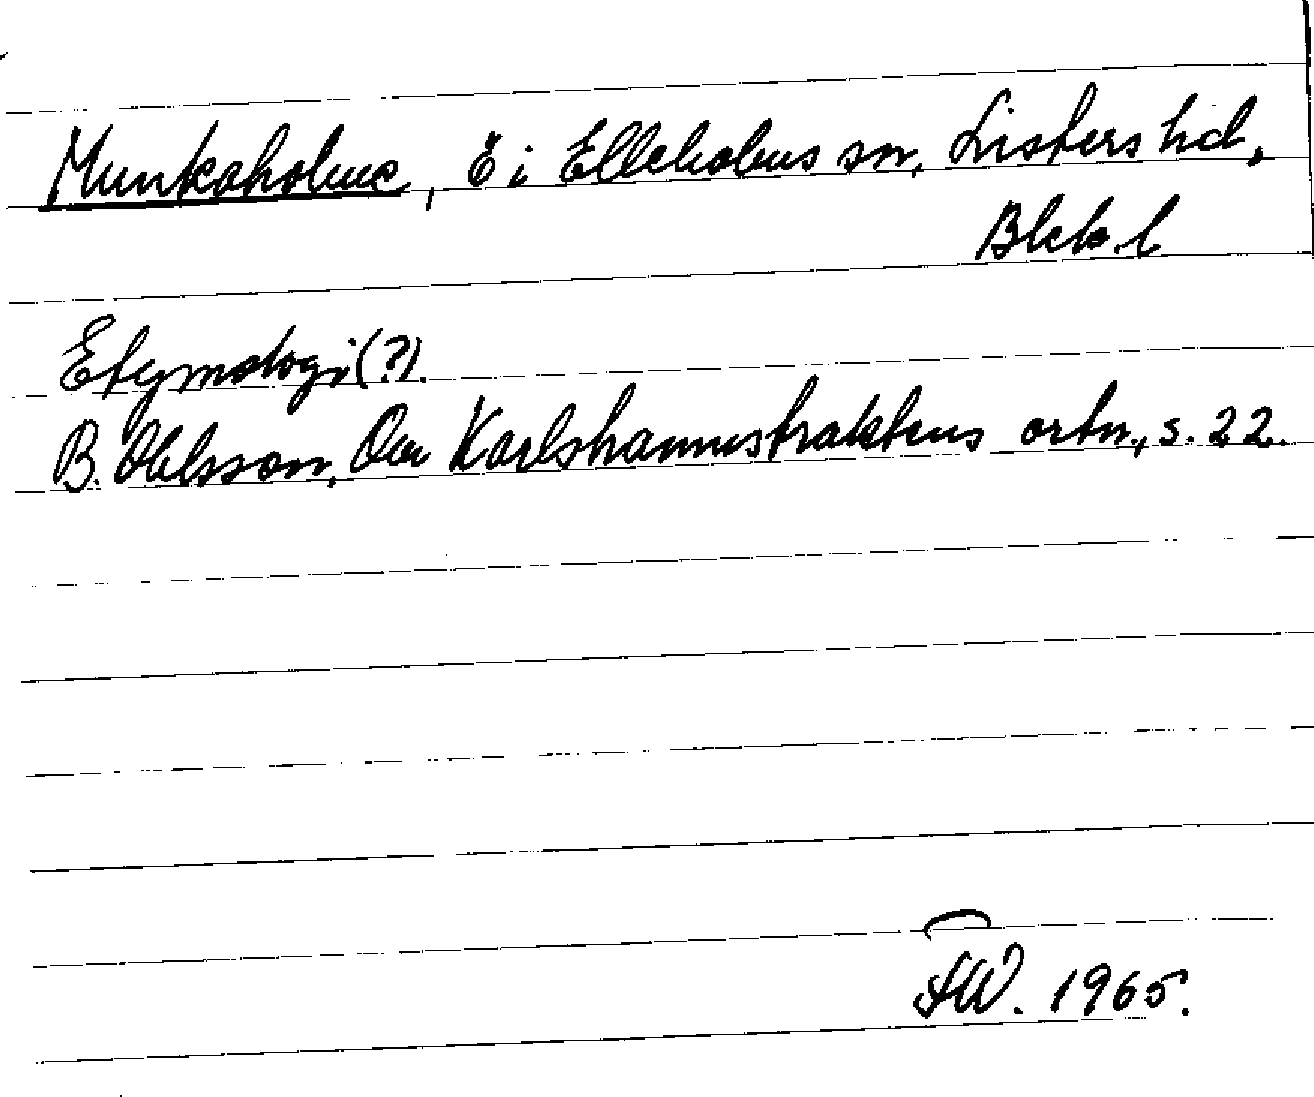 Munkaholme, Ö i Elleholms sn, Listers hd,
Blek. l
Etymologi(?).
B. Ohlsson, Om Karlshamnstraktens ortn., s. 22.
FW. 1965.